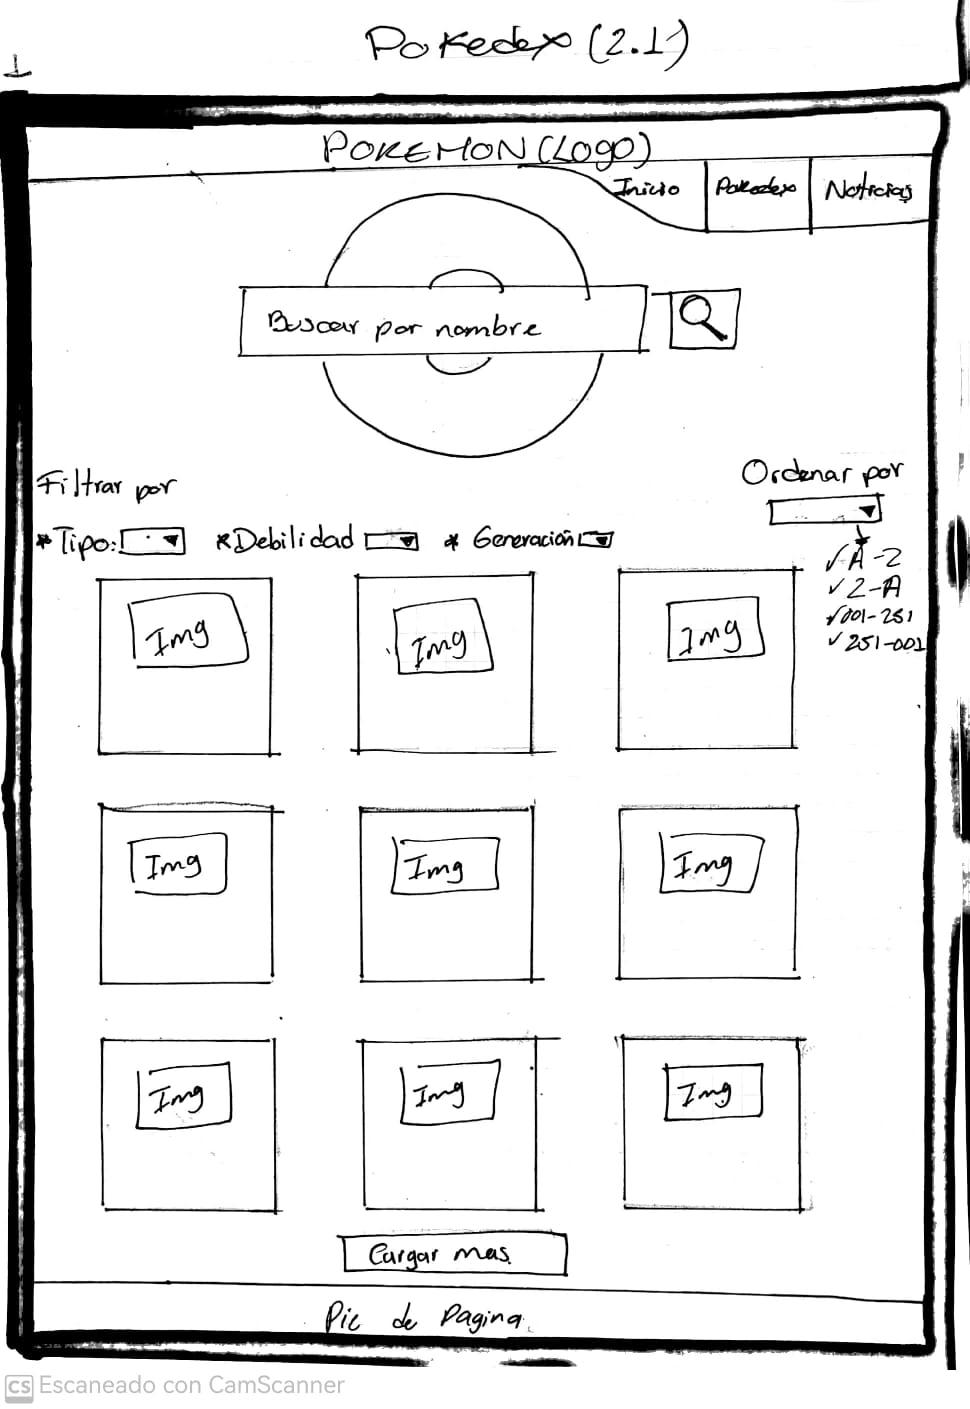 Pokedex (2.1)
1
POKEMON (Logo)
Inicio Pokedex Noticias
Buscar por nombre
Filtrar por
Ordenar por
* Tipo: * Debilidad * Generación
✓ A-Z
✓ Z-A
✓ 001-251
✓ 251-001
Img Img Img
Img Img Img
Img Img Img
Cargar mas
Pie de Pagina
CS Escaneado con CamScanner